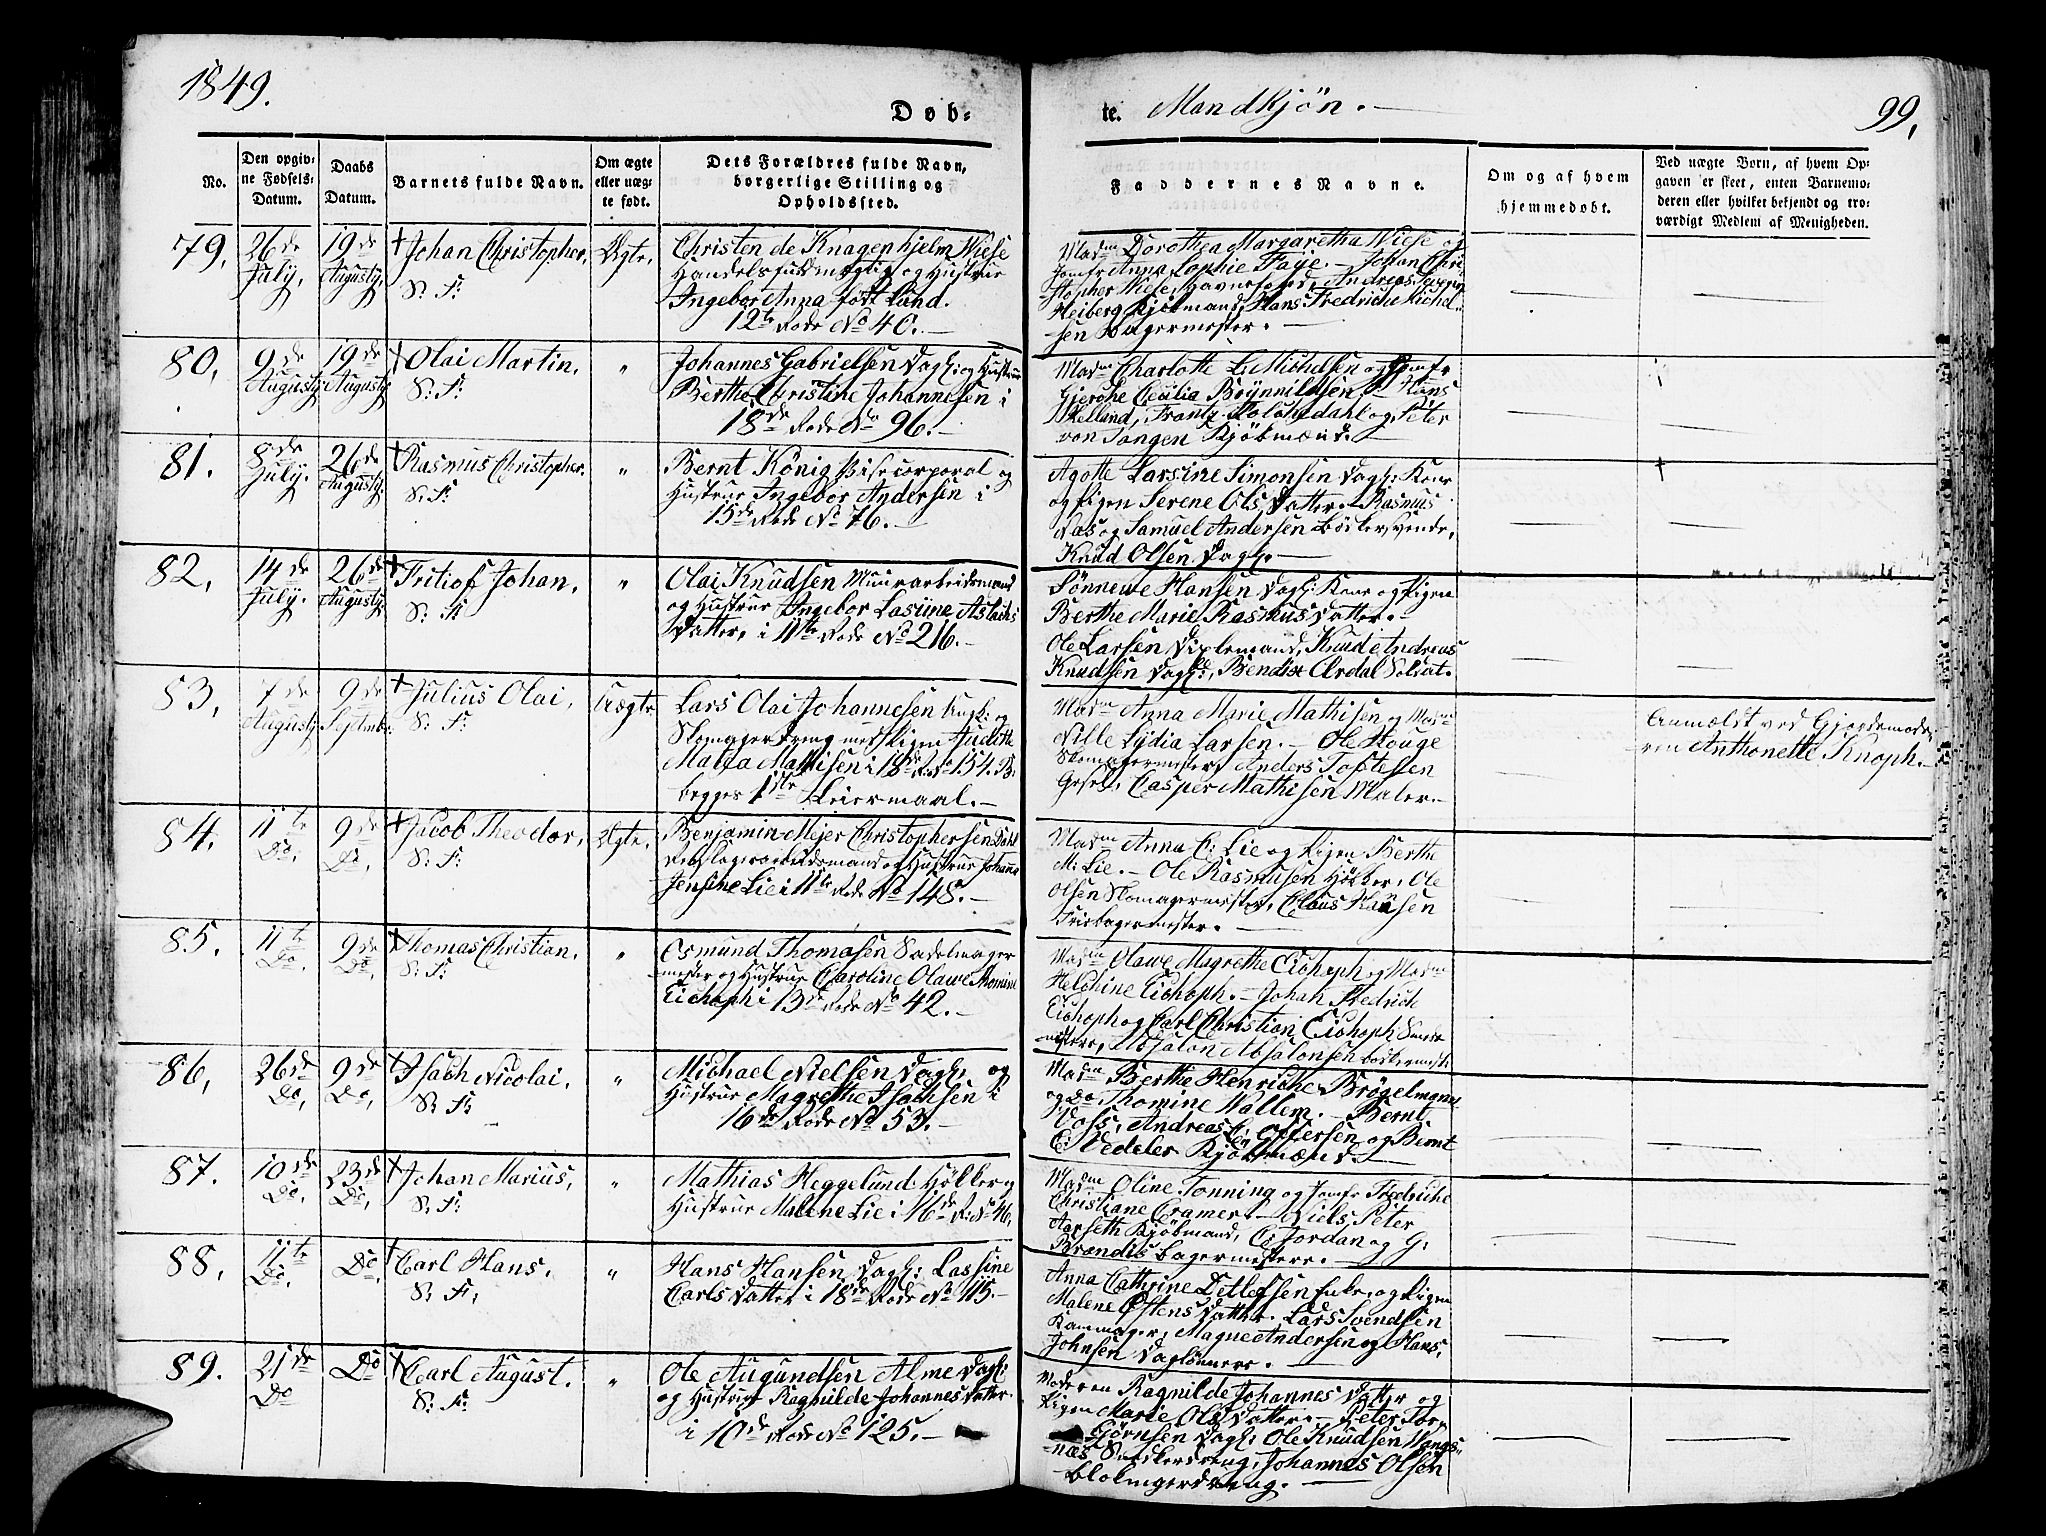 1849.
Døb-
te. Mandkjøn.
99,
No.
Den opgiv-
ne Fødsels-
Datum.
Daabs
Datum.
Barnets fulde Navn.
Om ægte
eller uæg-
te født.
Dets Forældres fulde Navn,
borgerlige Stilling og
Opholdssted.
Faddernes Navne.
Om og af hvem
hjemmedøbt.
Ved uægte Børn, af hvem Op-
gaven er skeet, enten Barnemo-
deren eller hvilket bekjendt og tro-
værdigt Medlem af Menigheden.
79,
26de
July,
19de
Augusty,
+ Johan Christopher,
S: F:
Ægte,
Christen de Knagenhjelm Wiese
Handelsfuldmægtig og Hustrue
Ingebor Anna født Lund.
12te Rode No 40.
Madm Dorothea Margaretha Wiese og
Jomfr Anna Sophie Faye. Johan Chri-
stopher Wiese, Havnefoged, Andreas
Heiberg Kjøbmand, Hans Fredrich Michel-
sen Bagermester.
80,
9de
Augusty
19de
Augusty
+ Olai Martin,
S: F:
"
Johannes Gabrielsen Dagl: og Hustrue
Berthe Christine Johannesen i
18de Rode No 96.
Madm Charlotte L: Michelsen og Jomfr
Gjerche Cecilia Brynnildsen, Hans
Kelland, Frantz Holchedahl og Peter
von Tangen Kjøbmænd.
81.
8de
July.
26de
Augusty,
+ Rasmus Christopher.
S: F:
"
Bernt König Bisecorporal og
Hustrue Ingebor Andersen i
15de Rode No 76.
Agotte Larsine Simonsen Dagl: Kone
og Pigen Serene Ols Datter. Rasmus
Næs og Samuel Andersen Bødkersvende,
Knud Olsen Dagl.
82,
14de
July.
26de
Augusty,
+ Fritiof Johan,
S: F:
"
Olai Knudsen Muurarbeidsmand
og Hustrue Ingebor Lasine Aslachs
Datter, i 11te Rode No 216.
Sønnewe Hansen Dagl: Kone og Pigen
Berthe Marie Rasmus Datter.
Ole Larsen Piplemand, Knud Andreas
Knudsen Dagl:, Bendix Ardal Soldat.
83,
7de
Augusty
9de
Septmbr,
+ Julius Olai,
S: F:
Uægte
Lars Olai Johannesen Ungk: og
Skomagerdreng med Pigen Juditte
Malta Mathisen i 18de R: No 154. B:
begges 1ste Leiermaal.
Madm Anna Marie Mathisen og Madm
Nille Lydia Larsen. Ole Houge
Skomagermester, Anders Toftesen
Gesel, Casper Mathisen Maler.
Anmeldt ved Gjordemode-
ren Anthonette Knoph.
84.
11te
Do,
9de
Do,
+ Jacob Theodor,
S: F:
Ægte,
Benjamin Mejer Christophersen Dahl
Rebslagerarbeidsmand og Hustrue Johane
Jensine Lie i 11te Rode No 148.
Madm Anna C: Lie og Pigen Berthe
M: Lie. Ole Rasmusen Høker, Ole
Olsen Skomagermester, Claus Hansen
Friebagermester.
85.
11te
Do,
9de
Do,
+ Thomas Christian,
S: F:
"
Osmund Thomasen Sadelmager
mester og Hustrue Caroline Olawe Thomine
Eichoph i 13de Rode No 42.
Madm Olawe Magrethe Eichoph og Madm
Helchine Eichoph. Johan Fredrich
Eichoph og Carl Christian Eichoph
mestere, Absalon Absalonsen
86,
26de
Do,
9de
Do,
+ Isach Nicolai,
S: F:
"
Michael Nielsen Dagl: og
Hustrue Magrethe Isachsen i
16de Rode No 53.
Madm Berthe Henriche Brøgelmann
og Do Thomine Wallem. Bernt
Voss, Andreas C: Ottersen og Bernt
C: Vedeler Kjøbmænd.
87.
10de
Do,
23de
Do,
+ Johan Marius,
S: F:
"
Mathias Heggelund Høkker og
Hustrue Malene Lie i 16de R: No 46,
Madm Oline Tonning og Jomfr Fredriche
Christiane Cramer. Niels Peter
Aarseth Kjøbmand, C: Jordan og G:
Brandis bagermestere.
88,
11te
Do,
Do,
+ Carl Hans,
S: F:
"
Hans Hansen Dagl: Lassine
Carls Datter i 18de Rode No 115.
Anna Cathrine Detlefsen Enke, og Pigen
Malene Østens Datter. Lars Svendsen
Kammager, Magne Andersen og Hans
Johnsen Daglønnere.
89.
21de
Do
Do
+ Carl August.
S: F:
"
Ole Augundsen Alme Dagl:
og Hustrue Ragnilde Johannes Datter
i 10de Rode No 125.
Moderen Ragnilde Johannes Datter og
Pigen Marie Ols Datter. Peter Tor-
Gjørnsen Dagl: Ole Knudsen Vangs-
næs Snedkerdreng, Johannes Olsen
bloknagerdreng.